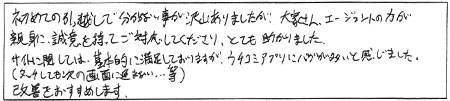 初めての引越しで分からない事が沢山ありましたが、大家さん、エージェントの方が
親身に、誠意を持ってご対応してくださり、とても助かりました。
サイトに関しては、基本的に満足しておりますが、ウチコミアプリにバグが多いと感じました。
(タッチしても次の画面に進まない…等)
改善をおすすめします。